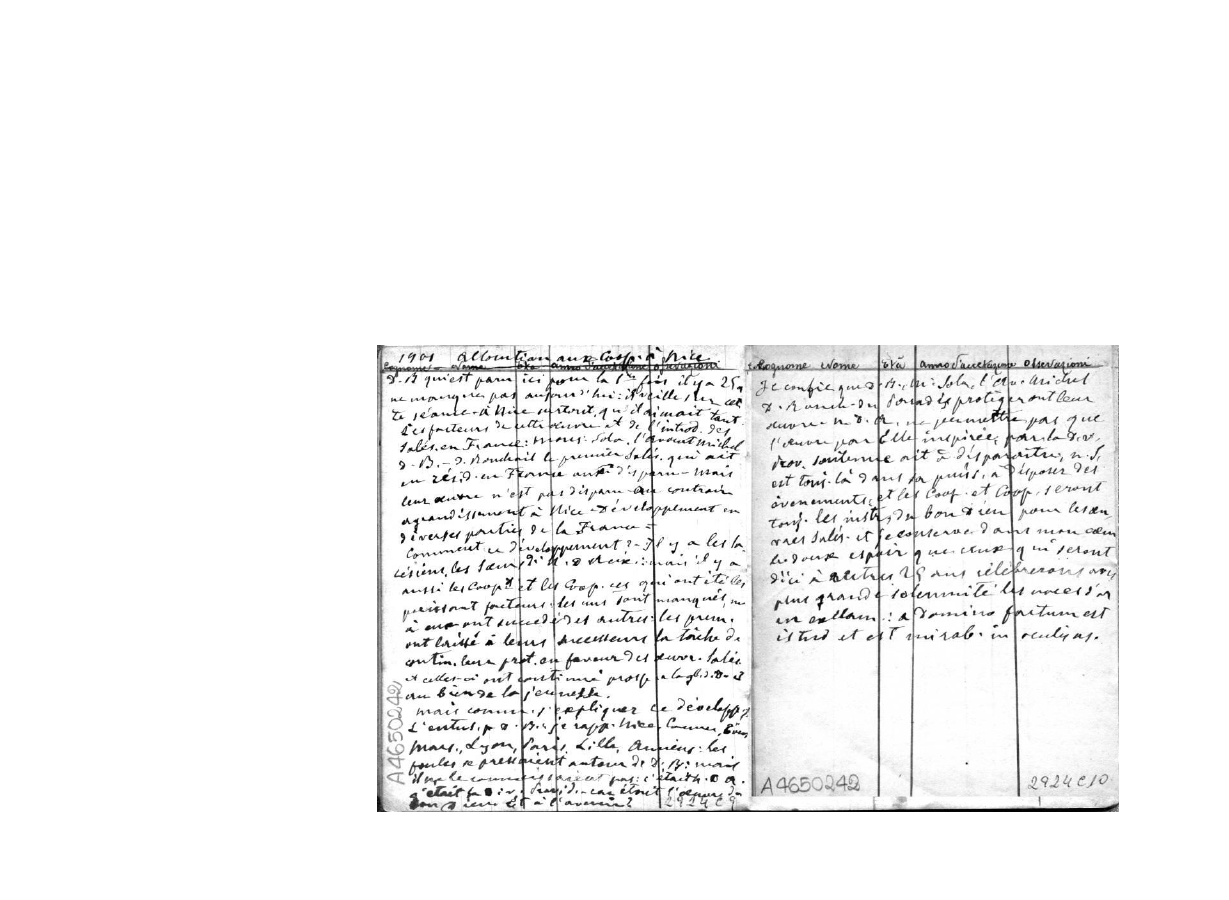 1901 Allocution aux Coop. à Nice
Cognome Nome età anno d'accettazione osservazioni
D. B. qui est paru ici pour la 1re fois il y a 25 a
ne manquera pas aujourd'hui: il veille sur cet
te séance à Nice surtout, qu'il aimait tant.
Les facteurs de cette œuvre et de l'introd. des
Salés. en France: Mons. Sola, l'avocat Michel
D. B. - D. Ronchail le premier Salés. qui ait
eu résid. en France ont disparu - mais
leur œuvre n'est pas disparu - au contraire
agrandissement à Nice - Développement en
diverses parties de la France =
Comment ce développement? - Il y a les Sa-
lésiens, les Sœurs di M. : mais il y a
aussi les Coop. et les Coop. ces qui ont été les
puissant facteurs: les uns sont manqués, ma
à eux ont succédé des autres: les prem.
ont laissé à leurs successeurs la tâche de
contin. leur prot. en faveur des œuvr. Salés.
et celles-ci ont continué prosp. a la gl. d. D. e
au bien de la jeunesse.
Mais comm. j'expliquer ce développ.t
L'entus. p. D. B.: je rapp. Nice, Cannes,
Mars., Lyon, Paris, Lille, Amiens: les
foules se pressaient autour de D. B: mais
le connaissaient pas: c'était
c'était la div. Provid. car c'était l'œuvre du
bon Dieu Et à l'avenir? 2924 C 9
A4650242
Cognome Nome età anno d'accettazione osservazioni
Je confie que D. B. M. Sola, l'Av. Michel
D. Ronch. du Paradis protégeront leur
œuvre - N. D. A. ne permettra pas que
l'œuvre par Elle inspirée, par la D. v.
Prov. soutenue ait à disparaître, N. S.
est touj. là dans sa puiss. à disposer des
événements, et les Coop. et Coop. seront
touj. les instr. du bon Dieu pour les œu
vres Salés. et je conserve dans mon cœur
le doux espoir que ceux qui seront
d'ici à autres 25 ans célébreront avec
plus grande solennité les noces d'or
en exclam.: a Domino factum est
istud et est mirab. in oculis os.
A4650242 2924 C 10